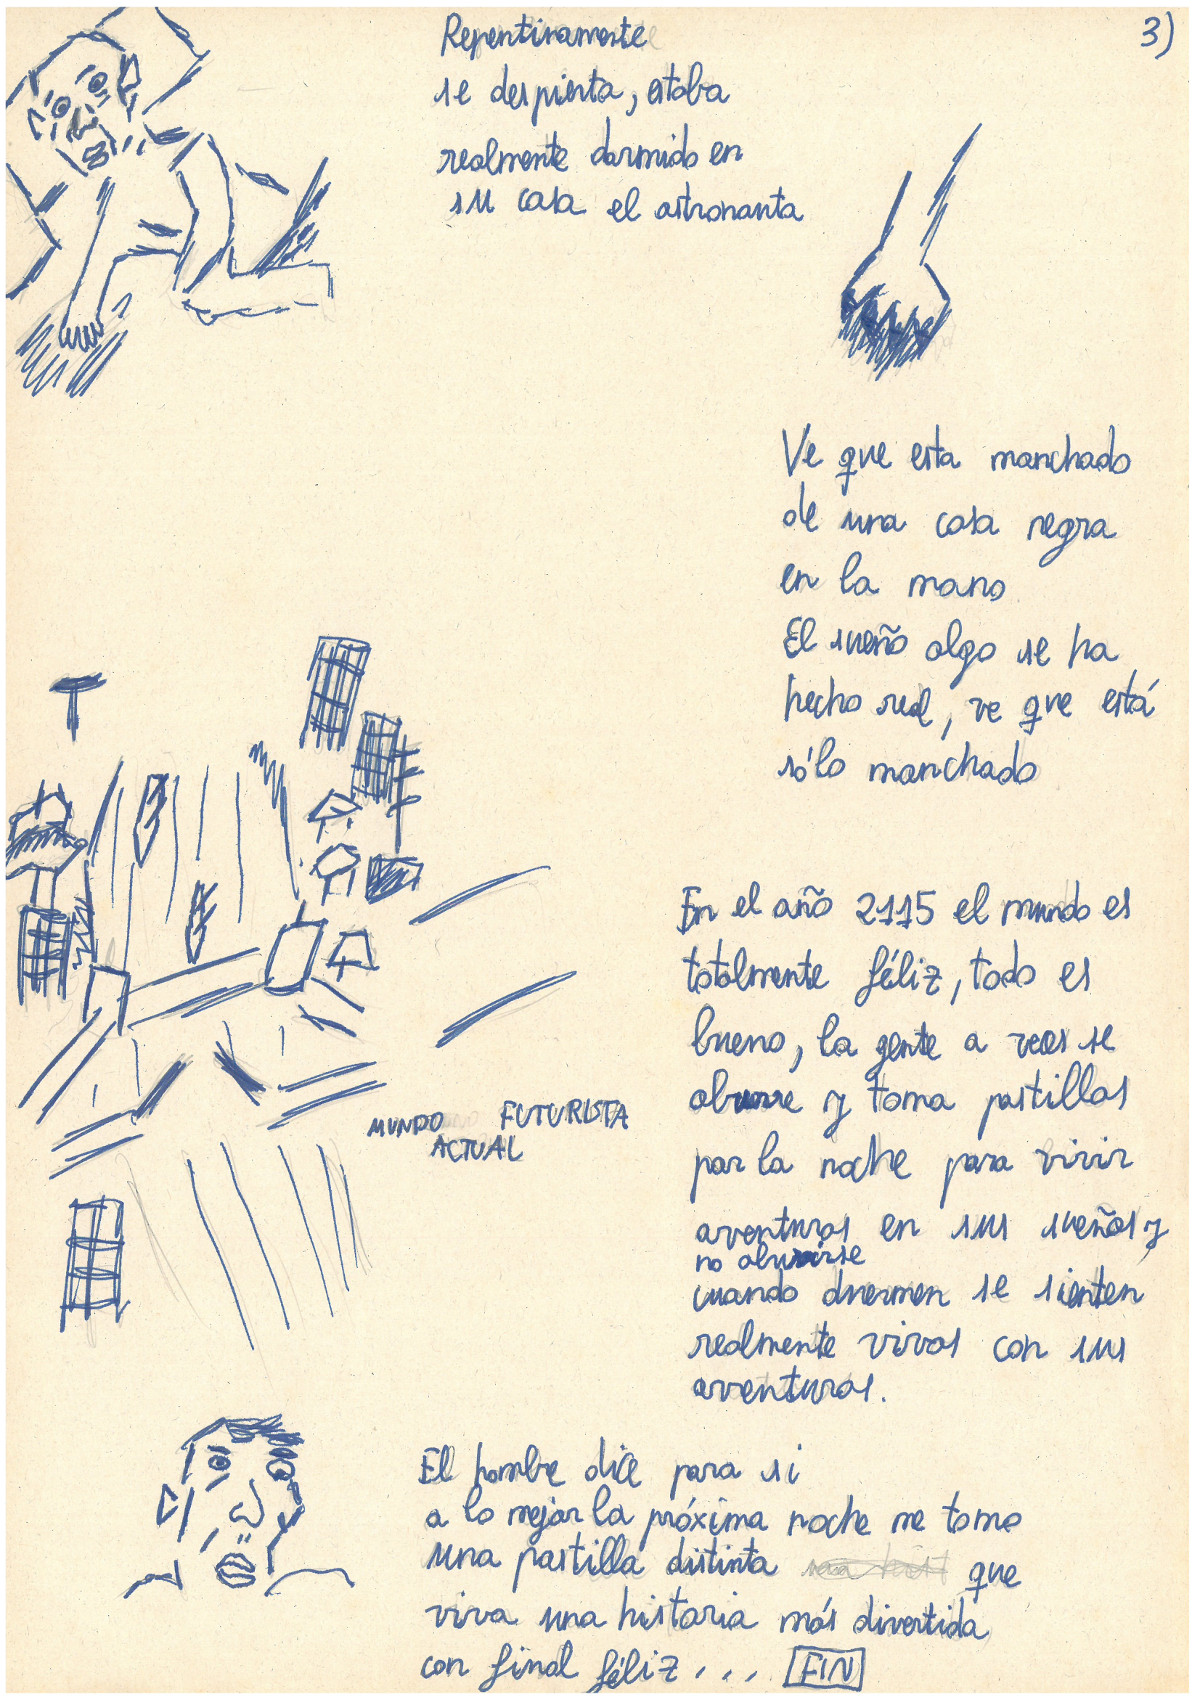 3)
Repentinamente
se despierta, estaba
realmente dormido en
su casa el astronauta
Ve que esta manchado
de una cosa negra
en la mano
El sueño algo se ha
hecho real, ve que está
sólo manchado
En el año 2115 el mundo es
totalmente féliz, todo es
bueno, la gente a veces se
aburre y toma pastillas
por la noche para vivir
aventuras en sus sueños y
no aburrirse
cuando duermen se sienten
realmente vivos con sus
aventuras.
MUNDO FUTURISTA
ACTUAL
El hombre dice para si
a lo mejor la próxima noche me tomo
una pastilla distinta que
viva una historia más divertida
con final féliz... FIN